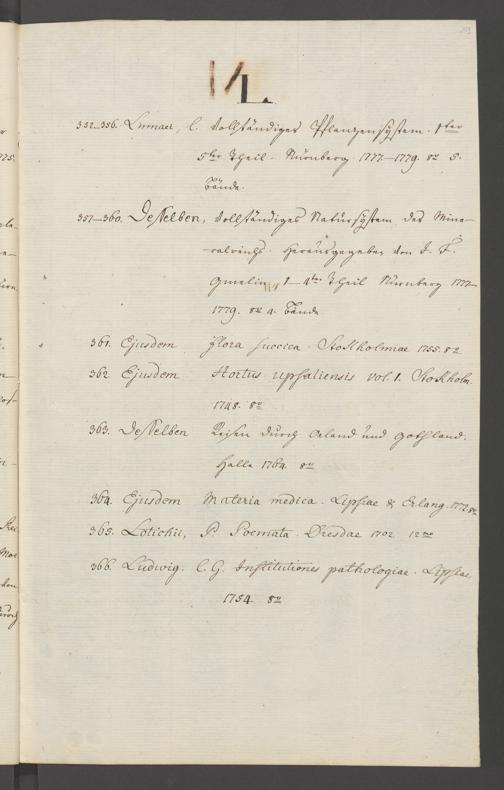 L
352-356. Linnaei, C. Vollständiges Pflanzensystem. 1ster
5ter Theil. Nürnberg 1777-1779. 8o 5.
Bände.
357-360. Desselben, Vollständiges Natursystem des Mine-
ralreichs. Herausgegeben von J. F.
Gmelin, 1-4ter Theil Nürnberg 1777-
1779. 8o 4. Bände
361. Ejusdem Flora suecica. Stockholmiae 1755. 8o
362 Ejusdem Hortus upsaliensis vol. 1. Stockholm.
1748. 8o
363. Desselben Reisen durch Oeland und Gothland.
Halle 1764. 8o
364. Ejusdem Materia medica. Lipsiae & Erlang. 1772 8o
365. Lotichii, P. Poemata. Dresdae 1702. 12mo
366. Ludwig. C. G. Institutiones pathologiae. Lipsiae,
1754. 8o